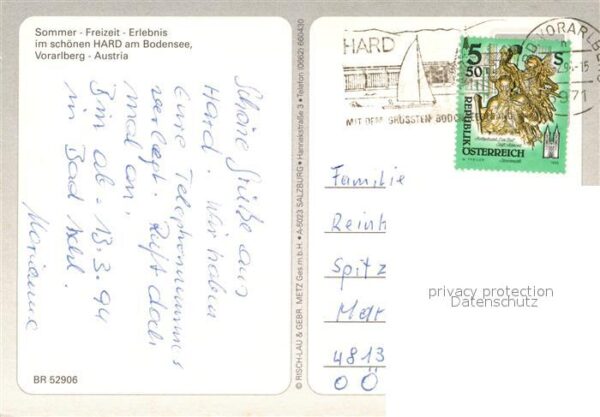 Sommer - Freizeit - Erlebnis
im schönen HARD am Bodensee,
Vorarlberg - Austria
Schöne Grüße aus
Hard. Wir haben
Eure Telephonnummer
verlegt. Ruft doch
mal an.
Bin ab 13.3.94
in Bad
Marianne
BR 52906
© RISCH-LAU & GEBR. METZ Ges.m.b.H. • A-5023 SALZBURG • Hannakstraße 3 • Telefon (0662) 660430
HARD
MIT DEM GRÖSSTEN
VORARLBE
971
5 S
50
REPUBLIK
ÖSTERREICH
Familie
Reinh
Spitz
4813
OÖ
privacy protection
Datenschutz